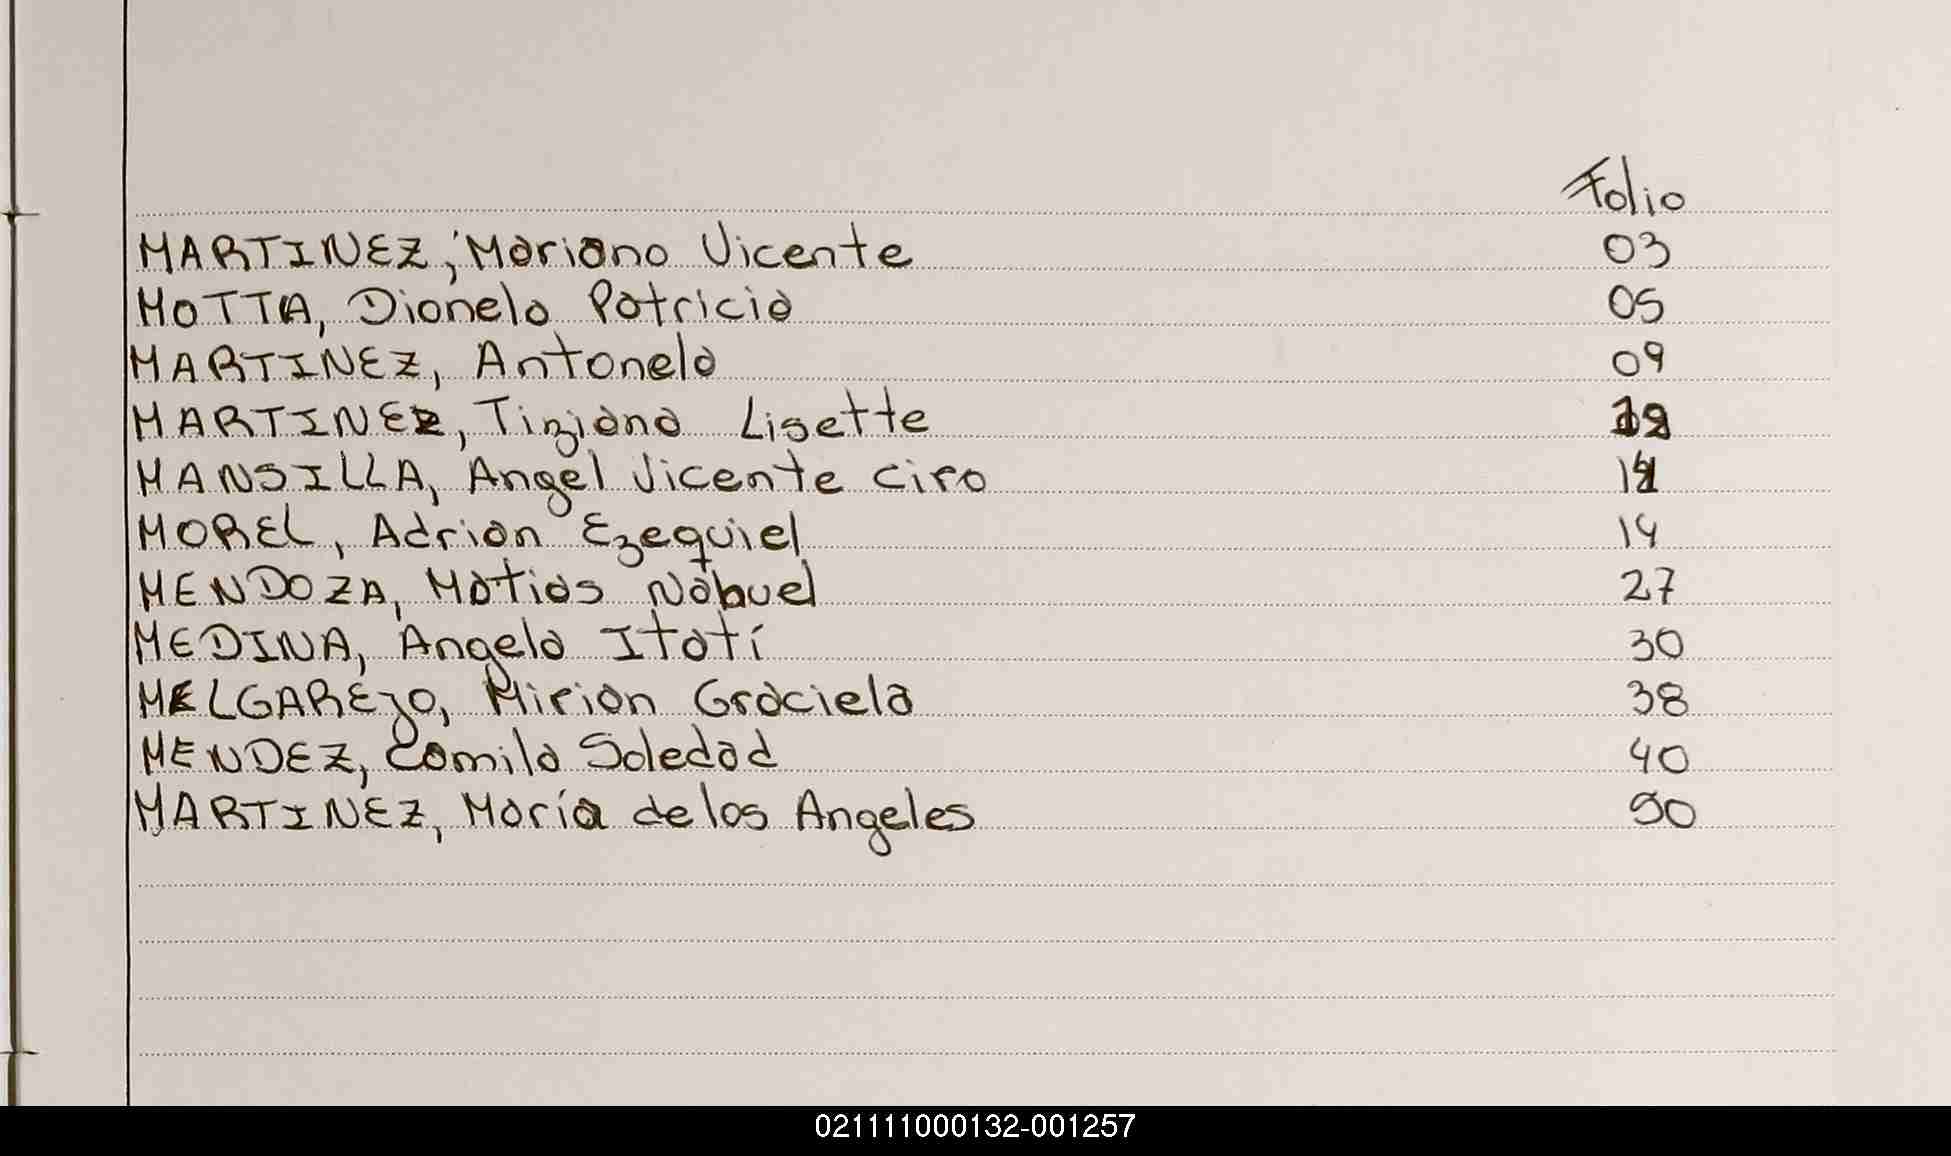 Folio
MARTINEZ, Mariano Vicente 03
MOTTA, Dionela Patricia 05
MARTINEZ, Antonela 09
MARTINEZ, Tiziana Lisette
MANSILLA, Angel Vicente Ciro
MOREL, Adrian Ezequiel 14
MENDOZA, Matias Nahuel 27
MEDINA, Angela Itatí 30
MELGAREJO, Mirian Graciela 38
MENDEZ, Camila Soledad 40
MARTINEZ, María de los Angeles 50
021111000132-001257